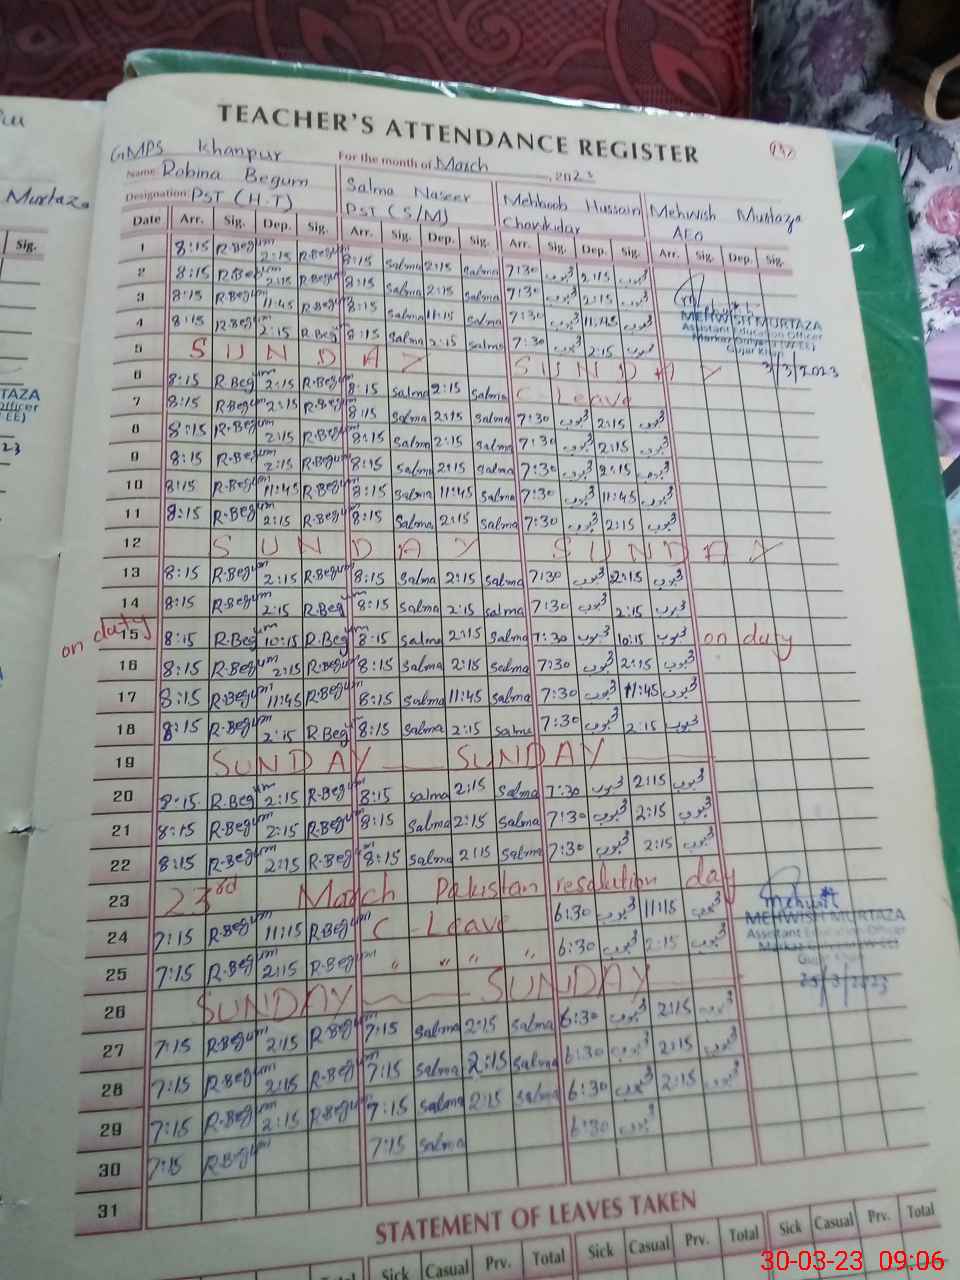 TEACHER'S ATTENDANCE REGISTER
GMPS Khanpur For the month of March, 2023
Name Robina Begum Salma Naseer Mehboob Hussain Mehwish Murtaza
Designation: PST (H.T) PST (S/M) Chowkidar AEO
Date Arr. Sig. Dep. Sig. Arr. Sig. Dep. Sig. Arr. Sig. Dep. Sig. Arr. Sig. Dep. Sig.
1 8:15 R.Begum 2:15 R.Begum 8:15 Salma 2:15 Salma 7:30 محبوب 2:15 محبوب
2 8:15 R.Begum 2:15 R.Begum 8:15 Salma 2:15 Salma 7:30 محبوب 2:15 محبوب
3 8:15 R.Begum 11:45 R.Begum 8:15 Salma 11:15 Salma 7:30 محبوب 11:45 محبوب
MEHWISH MURTAZA
Assistant Education Officer
Gujar Khan
3/3/2023
4 8:15 R.Begum 2:15 R.Beg 8:15 Salma 2:15 Salma 7:30 محبوب 2:15 محبوب
5 SUNDAY SUNDAY
6 8:15 R.Begum 2:15 R.Begum 8:15 Salma 2:15 Salma C Leave
7 8:15 R.Begum 2:15 R.Begum 8:15 Salma 2:15 Salma 7:30 محبوب 2:15 محبوب
8 8:15 R.Begum 2:15 R.Begum 8:15 Salma 2:15 Salma 7:30 محبوب 2:15 محبوب
9 8:15 R.Begum 2:15 R.Begum 8:15 Salma 2:15 Salma 7:30 محبوب 2:15 محبوب
10 8:15 R.Begum 11:45 R.Begum 8:15 Salma 11:45 Salma 7:30 محبوب 11:45 محبوب
11 8:15 R.Begum 2:15 R.Begum 8:15 Salma 2:15 Salma 7:30 محبوب 2:15 محبوب
12 SUNDAY SUNDAY
13 8:15 R.Begum 2:15 R.Begum 8:15 Salma 2:15 Salma 7:30 محبوب 2:15 محبوب
14 8:15 R.Begum 2:15 R.Begum 8:15 Salma 2:15 Salma 7:30 محبوب 2:15 محبوب
on duty 15 8:15 R.Begum 10:15 R.Begum 8:15 Salma 2:15 Salma 7:30 محبوب 10:15 محبوب on duty
16 8:15 R.Begum 2:15 R.Begum 8:15 Salma 2:15 Salma 7:30 محبوب 2:15 محبوب
17 8:15 R.Begum 11:45 R.Begum 8:15 Salma 11:45 Salma 7:30 محبوب 11:45 محبوب
18 8:15 R.Begum 2:15 R.Begum 8:15 Salma 2:15 Salma 7:30 محبوب 2:15 محبوب
19 SUNDAY SUNDAY
20 8:15 R.Begum 2:15 R.Begum 8:15 Salma 2:15 Salma 7:30 محبوب 2:15 محبوب
21 8:15 R.Begum 2:15 R.Begum 8:15 Salma 2:15 Salma 7:30 محبوب 2:15 محبوب
22 8:15 R.Begum 2:15 R.Begum 8:15 Salma 2:15 Salma 7:30 محبوب 2:15 محبوب
23 23rd March Pakistan resolution day
24 7:15 R.Begum 11:15 R.Begum C Leave 6:30 محبوب 11:15 محبوب
Mehwish
MEHWISH MURTAZA
Assistant Education Officer
Gujar Khan
25/3/2023
25 7:15 R.Begum 2:15 R.Begum " " " " 6:30 محبوب 2:15 محبوب
26 SUNDAY SUNDAY
27 7:15 R.Begum 2:15 R.Begum 7:15 Salma 2:15 Salma 6:30 محبوب 2:15 محبوب
28 7:15 R.Begum 2:15 R.Begum 7:15 Salma 2:15 Salma 6:30 محبوب 2:15 محبوب
29 7:15 R.Begum 2:15 R.Begum 7:15 Salma 2:15 Salma 6:30 محبوب 2:15 محبوب
30 7:15 R.Begum 7:15 Salma 6:30 محبوب
31
STATEMENT OF LEAVES TAKEN
Total Sick Casual Prv. Total Sick Casual Prv. Total Sick Casual Prv. Total
Murtaza
Sig.
30-03-23 09:06